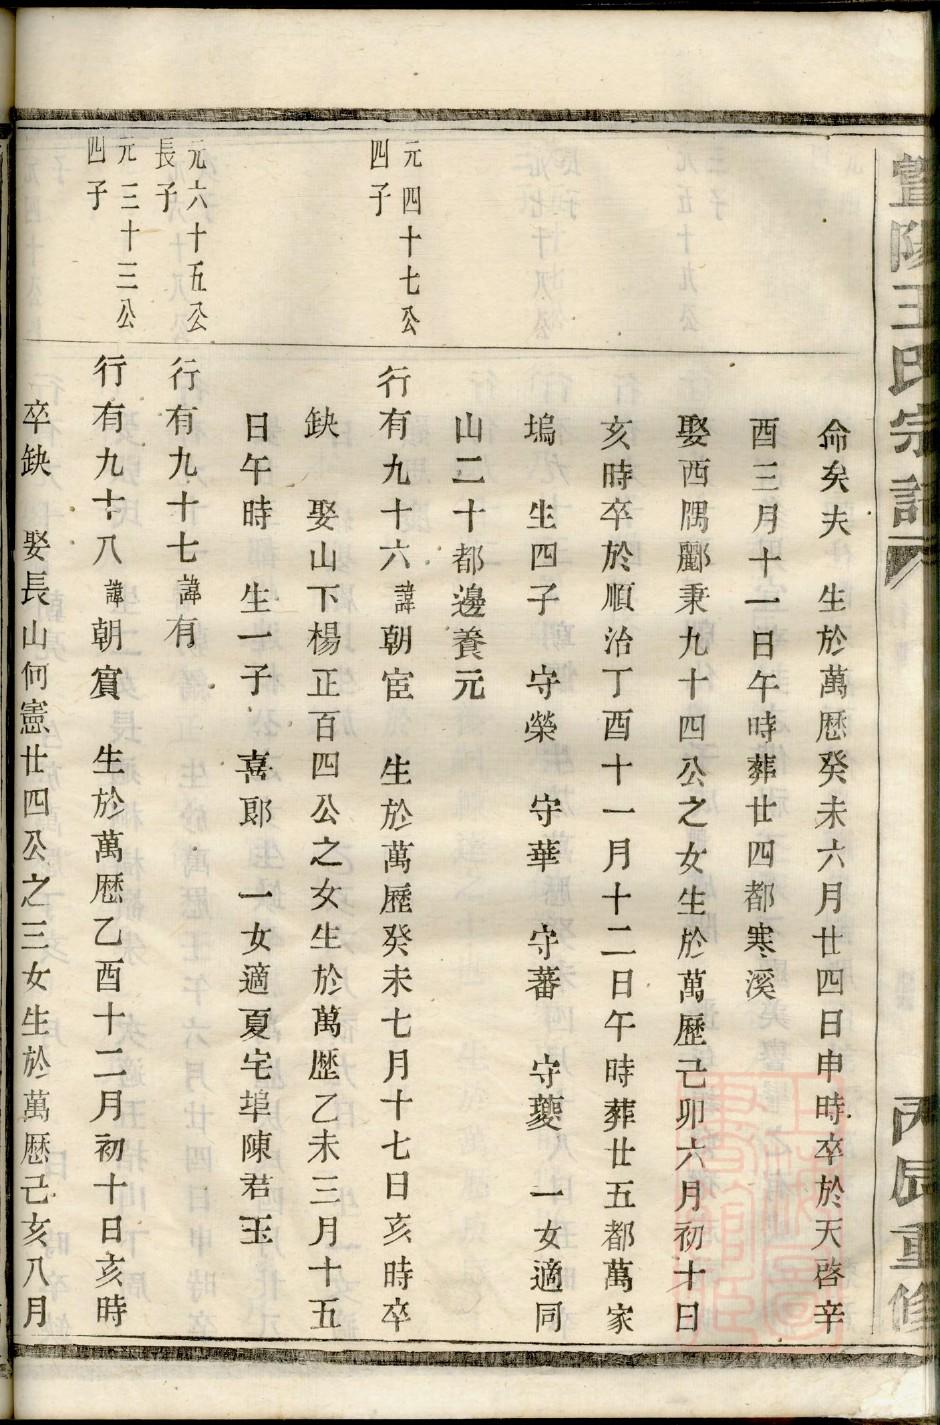 暨陽王氏宗譜
丙辰重修
命矣夫 生於萬厯癸未六月廿四日申時卒於天啓辛
酉三月十一日午時葬廿四都寒溪
娶酉隅酈秉九十四公之女生於萬歷己卯六月初十日
亥時卒於順治丁酉十一月十二日午時葬廿五都萬家
塢 生四子 守榮 守華 守蕃 守夔 一女適同
山二十都邊養元
元四十七公
四子
行有九十六諱朝宦 生於萬歷癸未七月十七日亥時卒
缺 娶山下楊正百四公之女生於萬歷乙未三月十五
日午時 生一子 喜郎 一女適夏宅埠陳君玉
元六十五公
長子
行有九十七諱有
元三十三公
四子
行有九十八諱朝賔 生於萬厯乙酉十二月初十日亥時
卒缺 娶長山何憲廿四公之三女生於萬厯己亥八月